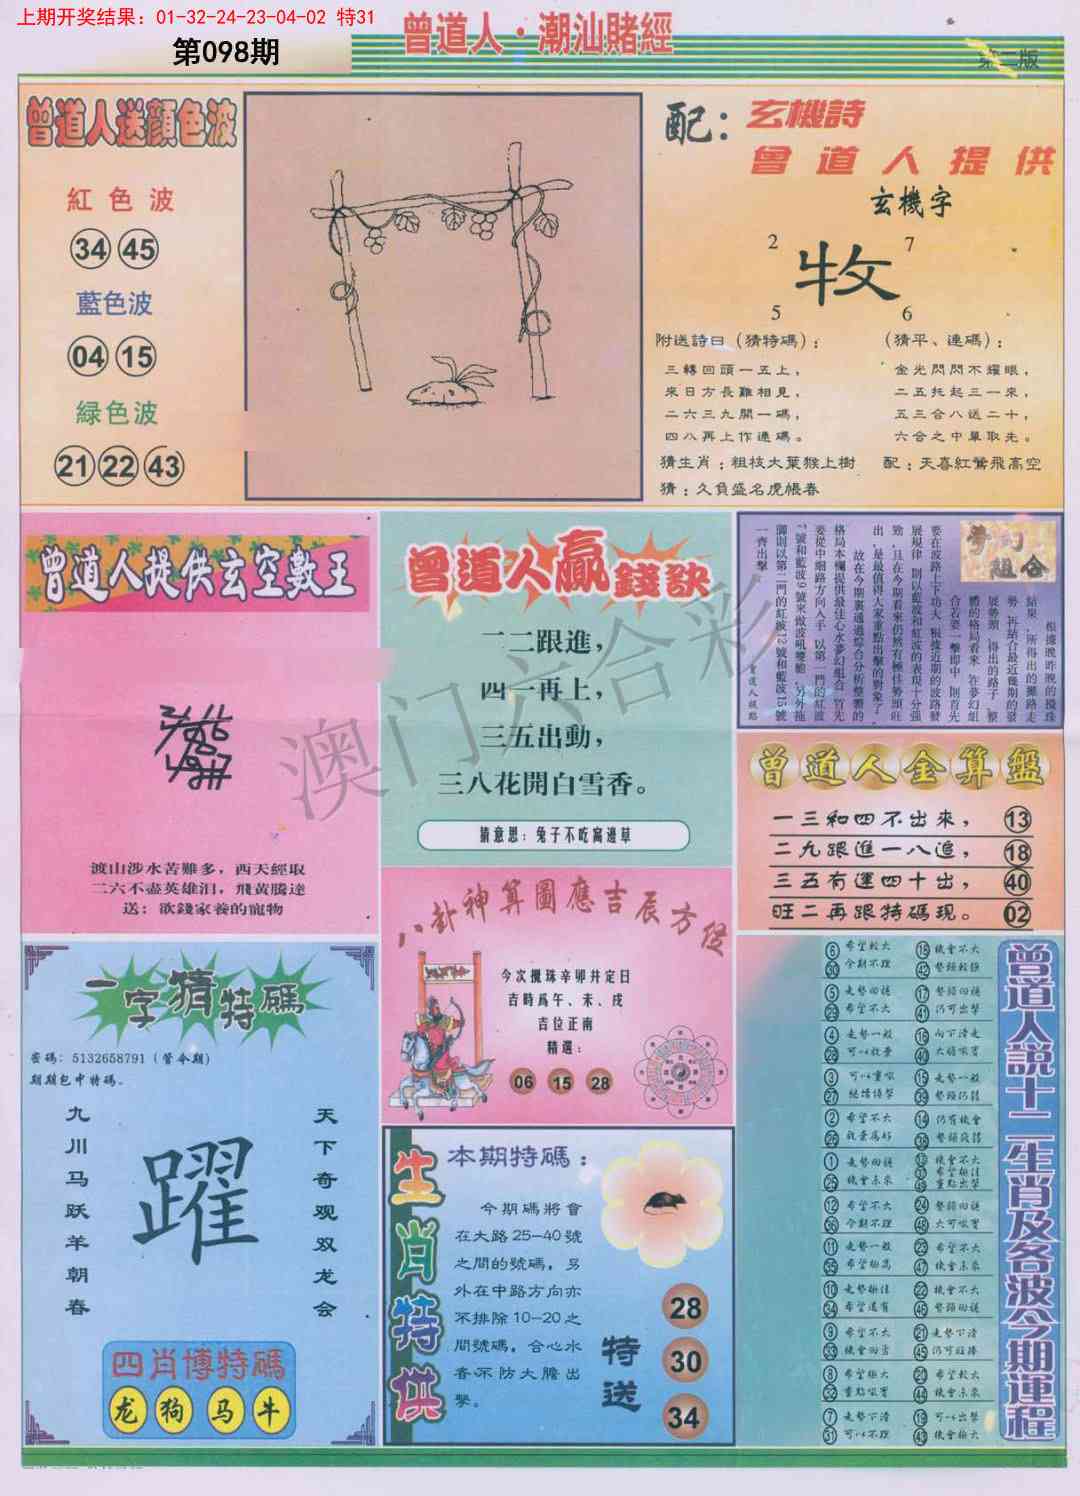 上期开奖结果：01-32-24-23-04-02 特31
第098期
曾道人·潮汕賭經
第二版
曾道人送顔色波
紅色波
34 45
藍色波
04 15
緑色波
21 22 43
配：玄機詩
曾道人提供
玄機字
2 7
牧
5 6
附送詩曰（猜特碼）：
三轉回頭一五上，
來日方長難相見，
二六三九開一碼，
四八再上作連碼。
（猜平、連碼）：
金光閃閃不耀眼，
二五托起三一來，
五三合八送二十，
六合之中單取先。
猜生肖：粗枝大葉猴上樹
配：天喜紅鸞飛高空
猜：久負盛名虎帳春
曾道人提供玄空數王
渡山涉水苦難多，西天經取
二六不盡英雄泪，飛黃騰達
送：欲錢家養的寵物
曾道人贏錢訣
一二跟進，
四一再上，
三五出動，
三八花開白雪香。
猜意思：兔子不吃窩邊草
夢幻組合
根據晚昨晚的攪珠
結果，所得出的攤路走
勢，再結合最近幾期的發
展勢頭，得出的路子，整
體的格局看來，在夢幻組
合若要一擊即中，則首先
要在波路上下功夫，根據近期的波路發
展規律，則以藍波和紅波的表現十分强
致，且在今期看來仍然有極佳勢頭旺
出，是最值得大家重點出擊的對象了。
故在今期裏通過綜合分析整體的
格局本欄提供最佳心水夢幻組合，首先
要從中細路方向入手，以第一門的紅波
7號和藍波9號來做波吼雙膽，另外拖
脚則以第二門的紅波12號和藍波15號
一齊出擊。
曾道人賊點
曾道人金算盤
一三和四不出來， 13
二九跟進一八追， 18
三五有運四十出， 40
旺二再跟特碼現。 02
八卦神算圖應吉辰方位
今次攪珠辛卯井定日
吉時爲午、未、戌
吉位正南
精選：
06 15 28
一字猜特碼
密碼：5132658791（管今期）
期期包中特碼。
九川马跃羊朝春
躍
天下奇观双龙会
四肖博特碼
龙 狗 马 牛
生肖特供
本期特碼：
今期碼將會
在大路25—40號
之間的號碼，另
外在中路方向亦
不排除10—20之
間號碼，合心水
者不防大膽出
擊。
特送
28
30
34
曾道人説十二生肖及各波今期運程
6 希望較大
30 今期不理
18 機會不大
42 勢頭較强
5 走勢回穩
29 希望不大
17 勢頭回穩
41 仍可出擊
4 走勢一般
28 可以放棄
16 向下滑走
40 大膽吼實
3 可以重吼
27 繼續博擊
15 走勢一般
39 勢頭仍弱
2 希望不大
26 放棄爲好
14 仍有機會
38 勢頭疲弱
1 走勢回穩
25 機會未來
13 機會不大
37 希望極佳
49 重點出擊
12 希望不大
36 今期不理
24 勢頭回穩
48 大可吼實
11 走勢一般
35 希望極高
23 希望不大
47 機會未來
10 走勢極佳
34 希望還有
22 機會不大
46 勢頭回穩
9 希望不大
33 機會回當
21 走勢下滑
45 仍可旺捧
8 希望極大
32 重點吼實
20 希望較大
44 機會未來
7 走勢下滑
31 可以不理
19 可以出擊
43 機會極大
澳门六合彩